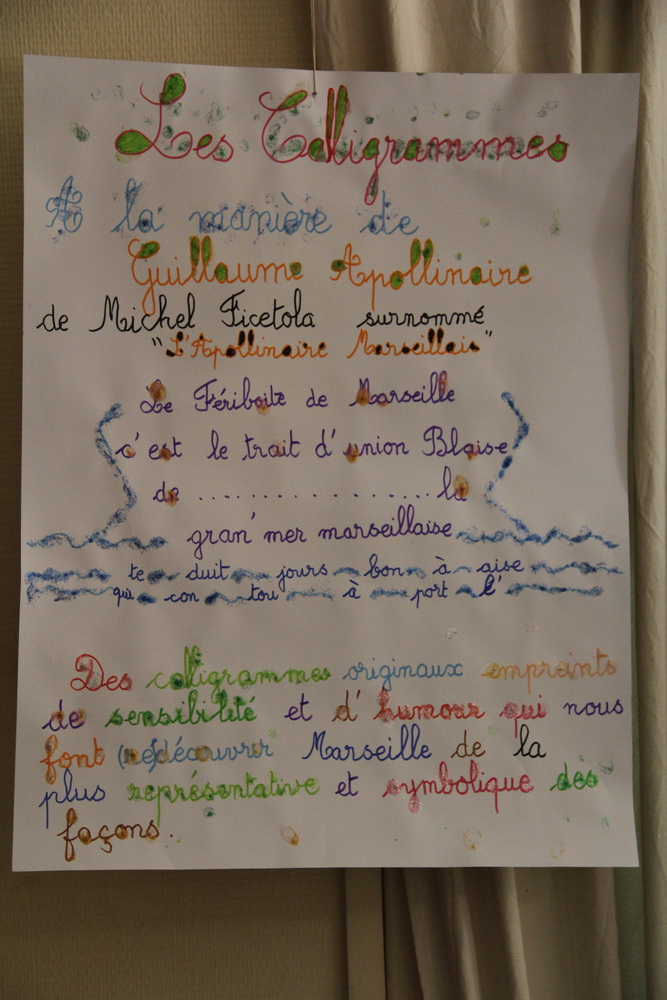 Les Calligrammes
A la manière de
Guillaume Apollinaire
de Michel Ficetola surnommé
"L'Apollinaire Marseillais"
Le Fériboite de Marseille
c'est le trait d'union Blaise
de .................. la
gran' mer marseillaise
te duit jours bon à aise
qui con tou à port l'
Des calligrammes originaux empreints
de sensibilité et d'humour qui nous
font (re)découvrir Marseille de la
plus représentative et symbolique des
façons.